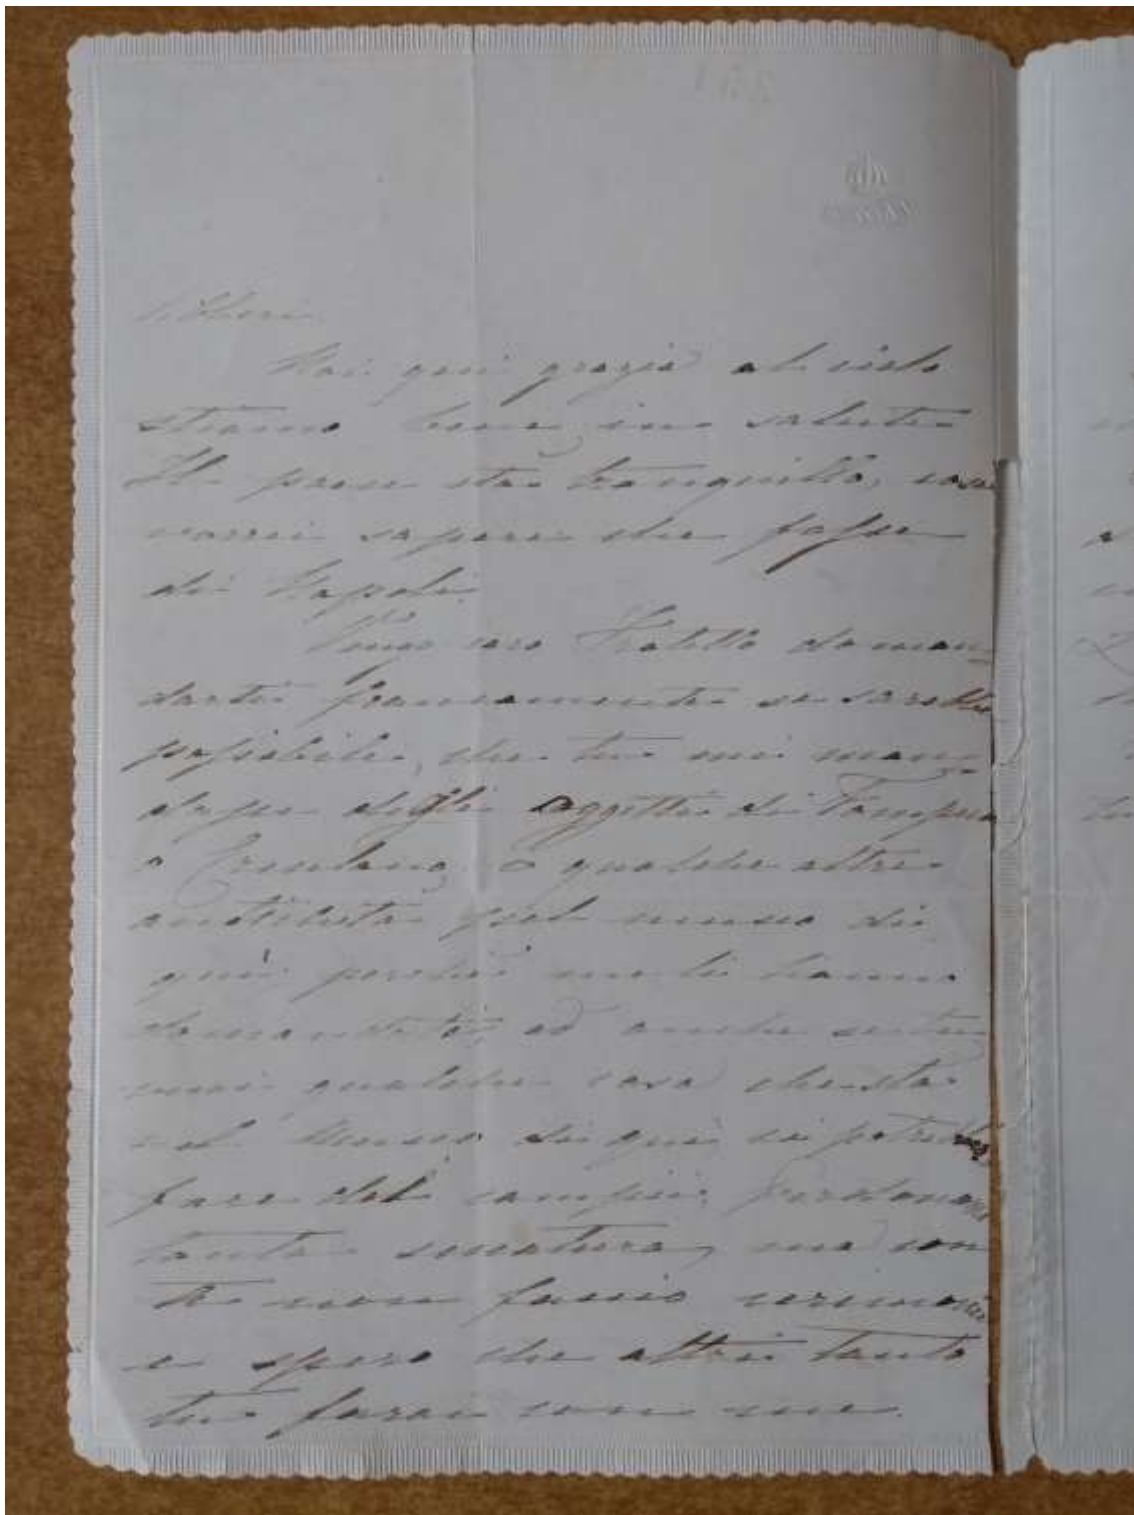 Noi qui grazia al cielo
stiamo bene in salute
Il paese sta tranquillo, cosa
vorrei sapere che fosse
di Napoli.
caro Fratello doman
darti francamente se sarebbe
possibile, che tu mi man
dasse degli oggetti di Pompea
o Ercolano, o qualche altra
antichità pel museo di
qui perchè me li hanno
domandato, ed anche se tu
vuoi qualche cosa che sta
nel Museo di qui si potrebbe
fare del campii, perdona
tanta seccatura, ma con
te non faccio cerimonie
e spero che altri tanto
tu farai con me.